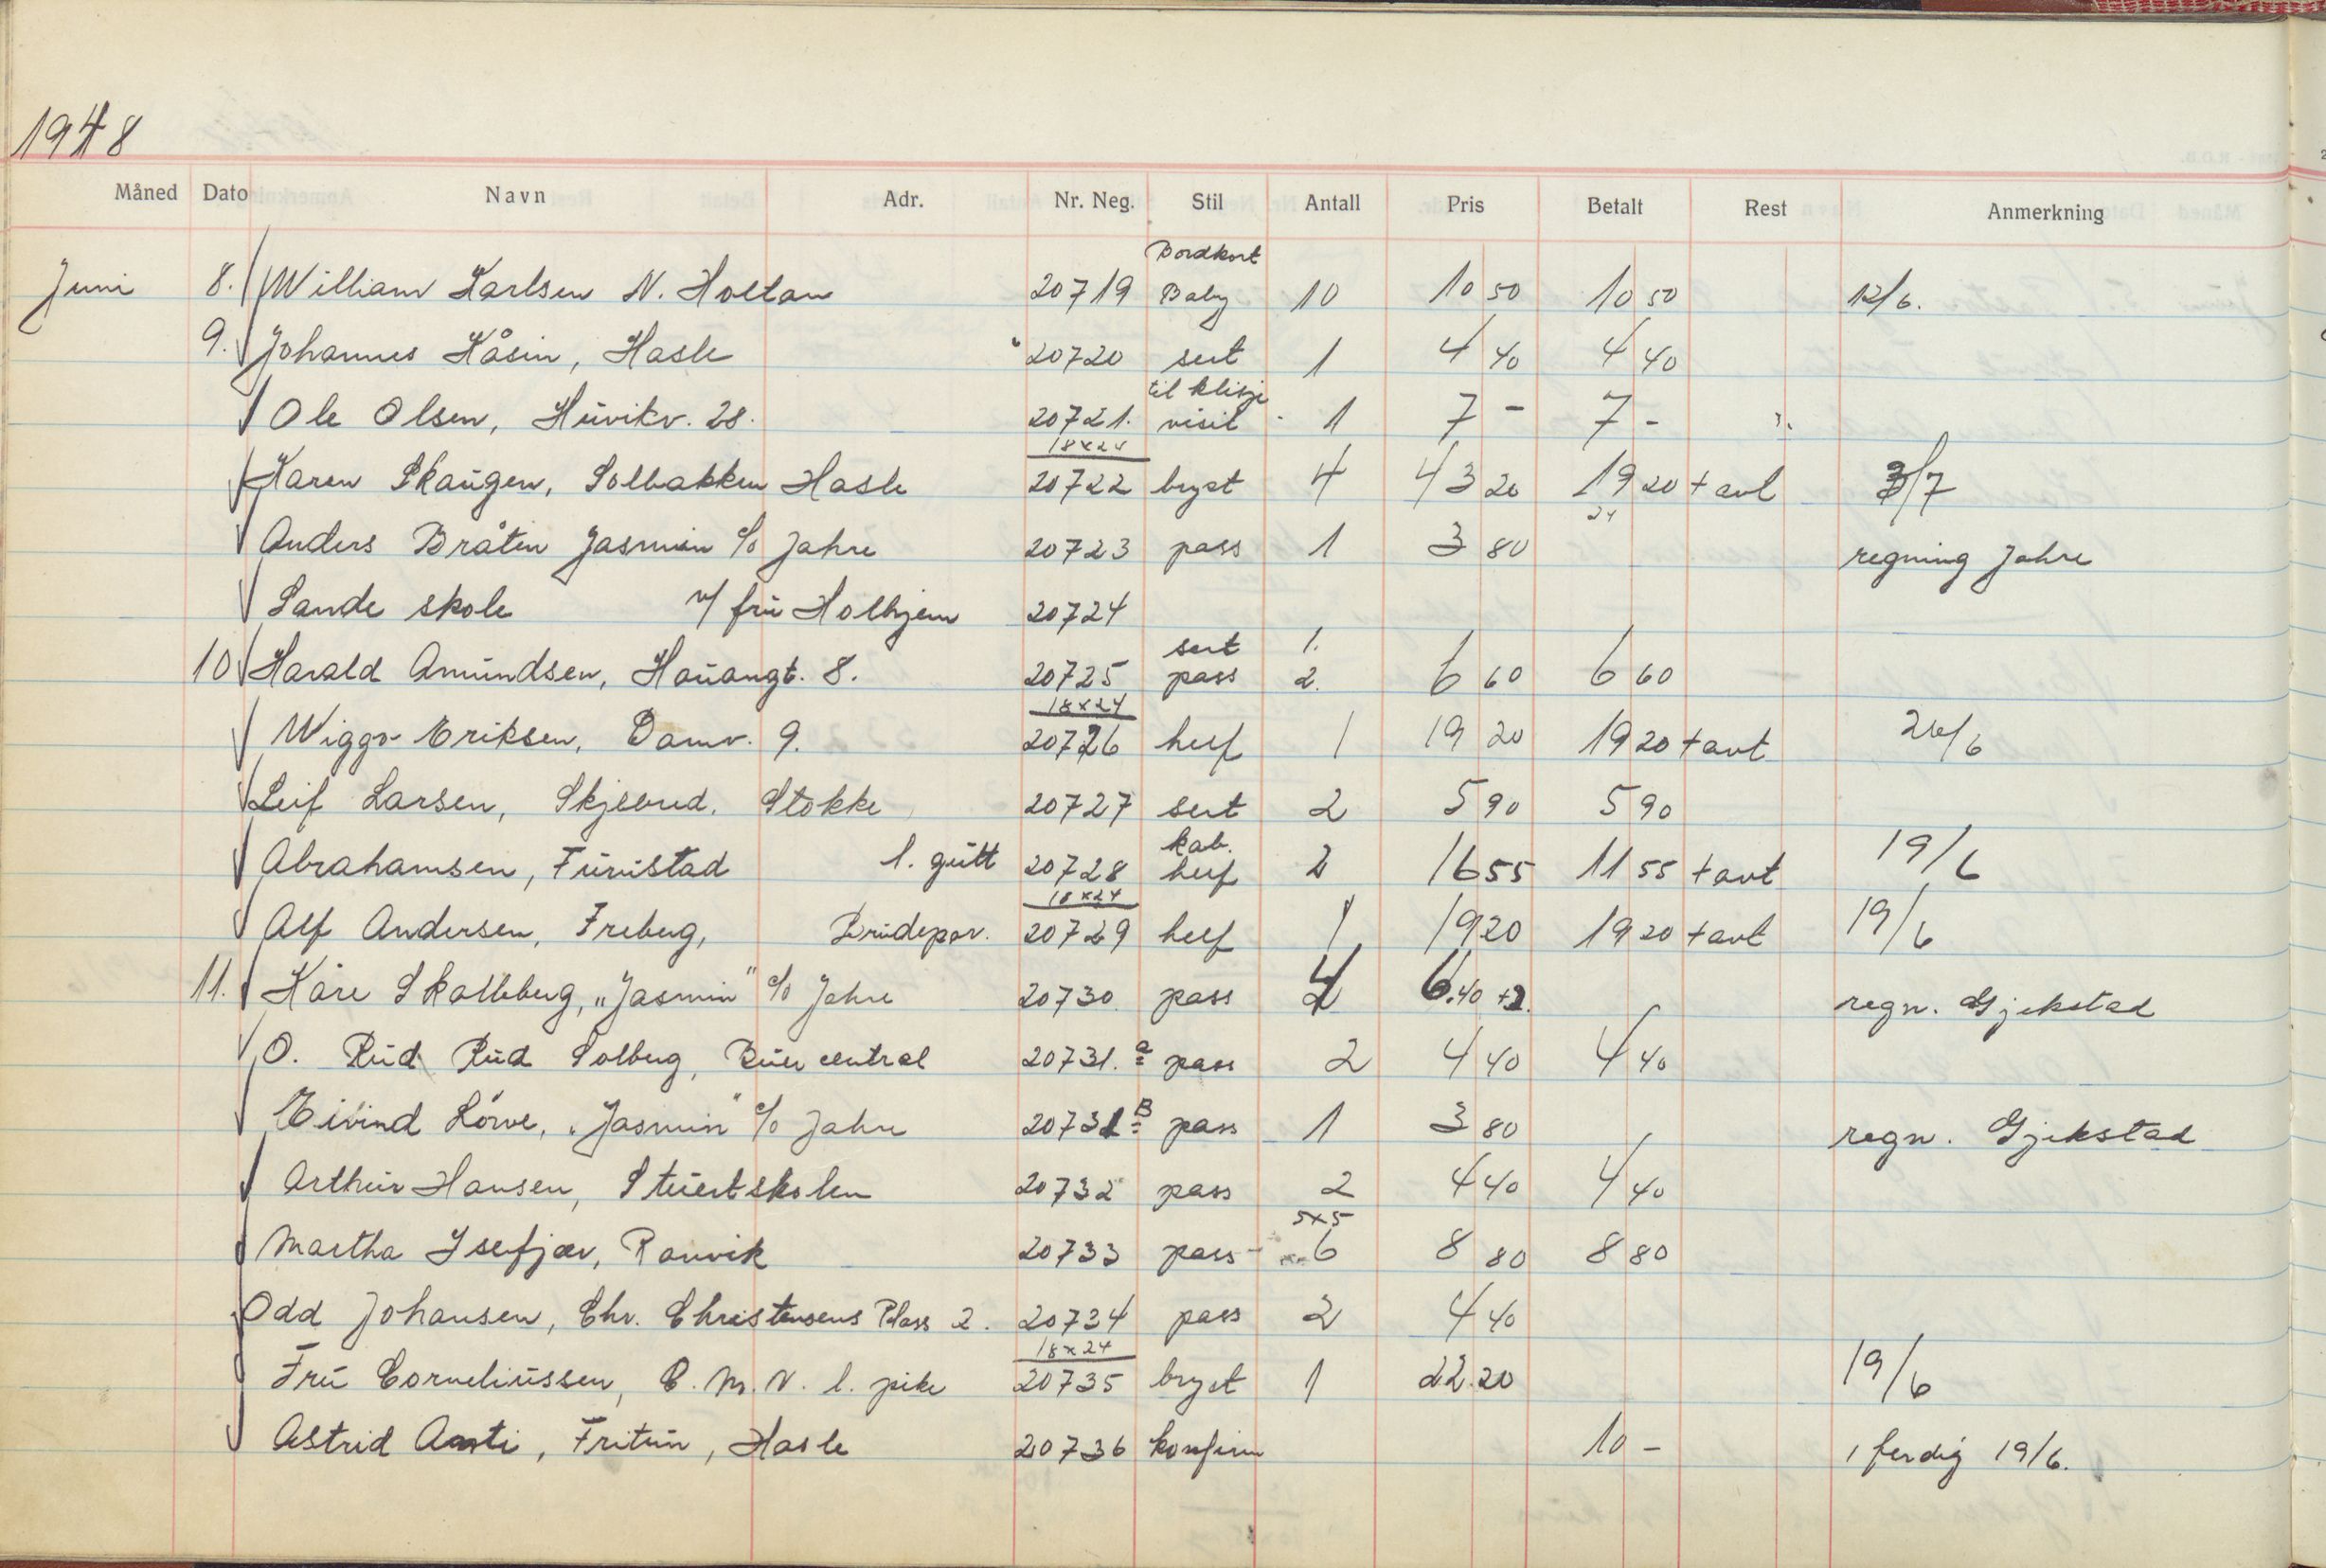 1948
Måned Dato Navn Adr. Nr. Neg. Stil Antall Pris Betalt Rest Anmerkning
Bordkort
Juni 8. William Karlsen N. Holtan 20719 Baby 10 10 50 10 50 12/6.
9. Johannes Kåsin, Hasle 20720 sert 1 4 40 4 40
til klisje
Ole Olsen, Huvikv. 28. 20721. visit 1 7 - 7 -
18x24
Karen Skaugen, Solbakken Hasle 20722 bryst 4 43 20 19 20 + avt 3/7
24
Anders Bråten Jasmin c/o Jahre 20723 pass 1 3 80 regning Jahre
Sande skole v/ fru Holhjem 20724
sert 1.
10 Harald Amundsen, Hauangt. 8. 20725 pass 2. 6 60 6 60
18x24
Wiggo Eriksen, Damv. 9. 20726 helf 1 19 20 19 20 + avt 26/6
Leif Larsen, Skjelbred, Stokke 20727 sert 2 5 90 5 90
kab.
Abrahamsen, Furustad l. gutt 20728 helf 2 16 55 11 55 + avt 19/6
18x24
Alf Andersen, Freberg, Brudepar. 20729 helf 1 19 20 19 20 + avt 19/6
11. Kåre Skalleberg, "Jasmin" c/o Jahre 20730 pass 4 6.40 +2. regn. Gjekstad
O. Rud Rud Solberg, Buer central 20731. a pass 2 4 40 4 40
Eivind Löwe, "Jasmin" c/o Jahre 20731 B pass 1 3 80 regn. Gjekstad
Arthur Hansen, Stuertskolen 20732 pass 2 4 40 4 40
5x5
Martha Isefjær, Ranvik 20733 pass - 6 8 80 8 80
Odd Johansen, Chr. Christensens Plass 2. 20734 pass 2 4 40
18x24
Fru Corneliussen, C. M. V. l. pike 20735 bryst 1 22 20 19/6
Astrid Fritun, Hasle 20736 konfirm 10 - 1 ferdig 19/6.